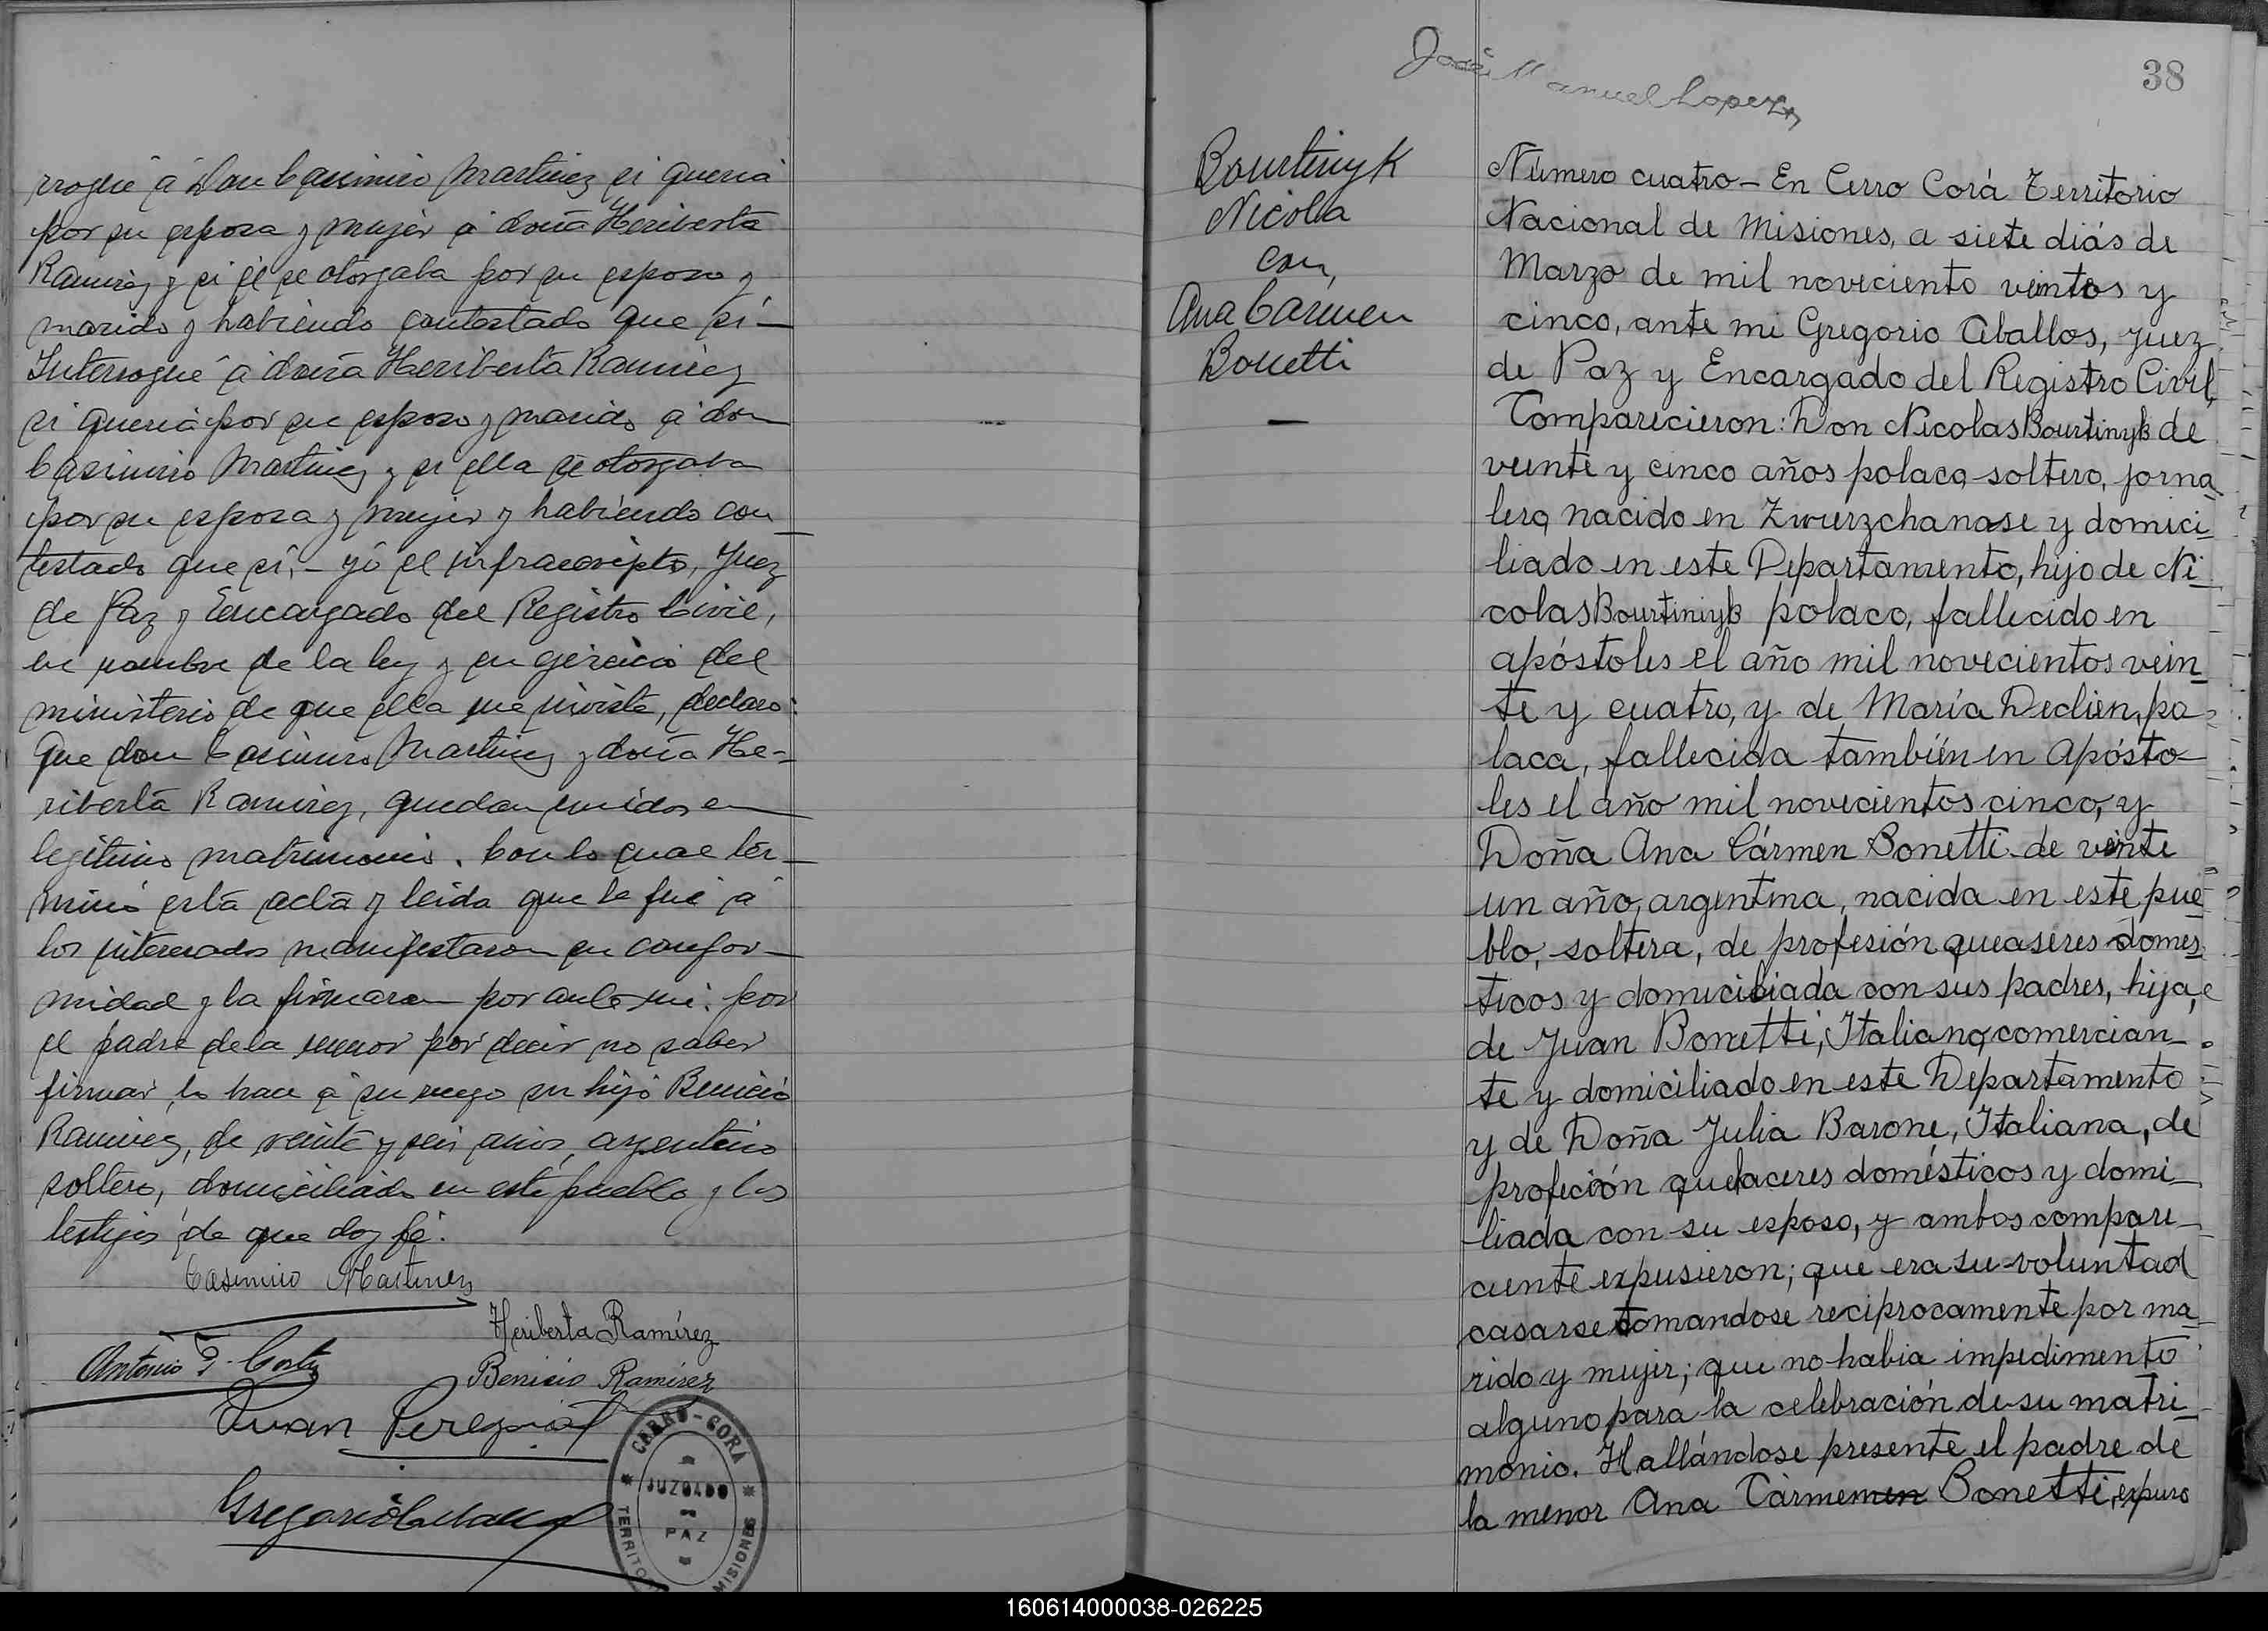 rrogué á Don Casimiro Martinez si queria
por su esposa y mujer á doña Heriberta
Ramirez y si él se otorgaba por su esposo y
marido y habiendo contestado que sí—
Interrogué á doña Heriberta Ramirez
si queria por su esposo y marido á don
Casimiro Martinez y si ella se otorgaba
por su esposa y mujer y habiendo con
testado que sí,— yó el infrascripto, Juez
de Paz y Encargado del Registro Civil,
en nombre de la ley y en ejercicio del
ministerio de que ella me inviste, declaro:
Que don Casimiro Martinez y doña He-
riberta Ramirez, quedan unidos en
legitimo matrimonio. Con lo cual tér—
minó esta acta y leida que le fué á
los interesados manifestaron su confor—
midad y la firmaron por ante mi: por
el padre de la menor por decir no saber
firmar, lo hace á su ruego su hijo Benicio
Ramirez, de veinte y seis años, argentino
soltero, domiciliado en este pueblo y los
testigos de que doy fé.
Casimiro Martinez
Heriberta Ramírez
Antonio F. Cortz
Benicio Ramirez
Juan
CERRO-CORÁ
JUZGADO
PAZ
TERRITO
MISIONES
José Manuel Lopez
38
Bourtinyk
Nicola
con
Ana Cármen
Bonetti
—
Número cuatro— En Cerro Corá Territorio
Nacional de Misiones, a siete diás de
Marzo de mil noveciento veintos y
cinco, ante mi Gregorio Ceballos, Juez
de Paz y Encargado del Registro Civil,
Comparecieron: Don Nicolas Bourtinyk de
veinte y cinco años polaco, soltero, jorna
lero, nacido en Zwurzchanase y domici
liado en este Departamento, hijo de Ni
colas Bourtiniyk polaco, fallecido en
apóstoles el año mil novecientos vein
te y cuatro, y de María Declien, po
laca, fallecida también en Apósto
les el año mil novecientos cinco, y
Doña Ana Cármen Bonetti de veinte
un año, argentina, nacida en este pue
blo, soltera, de profesión queaseres domes
ticos y domiciliada con sus padres, hija,
de Juan Bonetti, Italiano, comercian
te y domiciliado en este Departamento
y de Doña Julia Barone, Italiana, de
profeción quehaceres domésticos y domi
liada con su esposo, y ambos compare
ciente expusieron; que era su voluntad
casarse tomandose reciprocamente por ma
rido y mujer; que no habia impedimento
alguno para la celebración de su matri
monio. Hallándose presente el padre de
la menor Ana Cármemen Bonetti, expuso
160614000038-026225